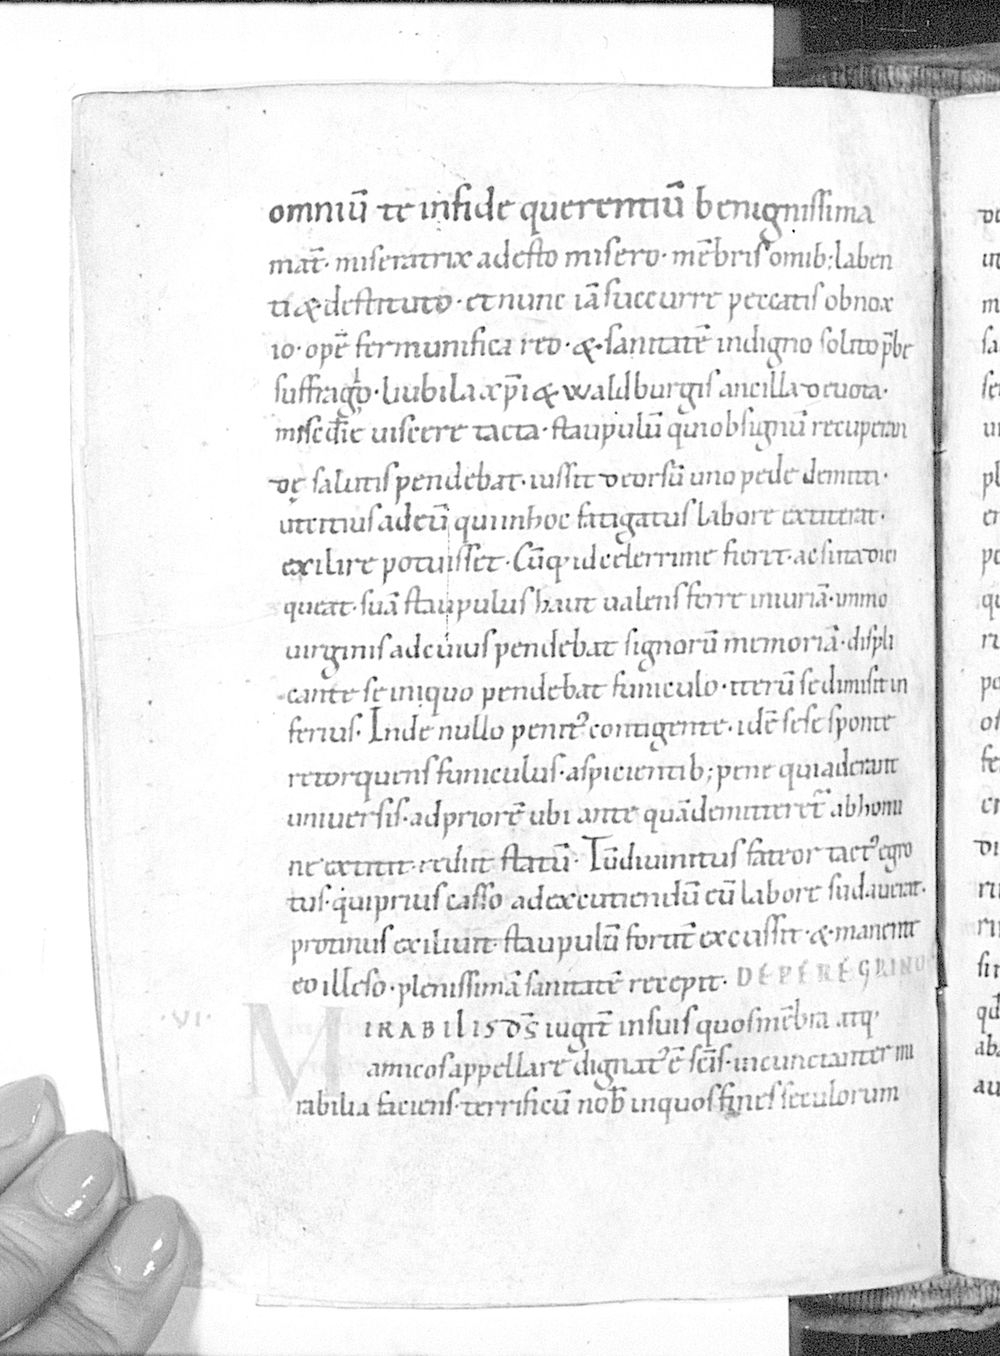 omniū te in fide querentiū benignissima
mat̄· miseratrix adesto misero· mēbris omib; laben
ti & destituto· et nunc iā succurre peccatis obnox
io· opē fer munifica reo· &· sanitatē indigno solito p̄be
suffragio· Liubila xp̄i & Waldburgis ancilla deuota·
viscere tacta· staupulū qui ob signū recuperan
dę salutis pendebat· iussit deorsū uno pede demitti·
ut citius ad eū qui in hoc fatigatus labore extiterat·
exilire potuisset· Cūq· id celerrime fierit· ac si ita dici
queat· suā staupulus haut ualens ferre iniuriā· immo
uirginis ad cuius pendebat signorū memoriā· displi
cante se iniquo pendebat funiculo· iterū se dimisit in
ferius· Inde nullo penit᾿ contigente· idē sese sponte
retorquens funiculus· aspicientib; pene qui aderant
uniuersis· ad priorē ubi ante quā demitteret᾿ ab homi
ne extitit· rediit statū· Tū diuinitus fateor tact᾿ egro
tus· qui prius casso ad excutiendū eū labore sudauerat·
protinus exiliuit· staupulū fortit̄ excussit· & manente
eo illeso· plenissimā sanitatē recepit· DE PEREGRINO
·VI· MIRABILIS DS̄ iugit̄ in suis quos mēbra atq·
amicos appellare dignat᾿ ē sc̄is· incunctanter mi
rabilia faciens· terrificū nob̄ in quos fines seculorum